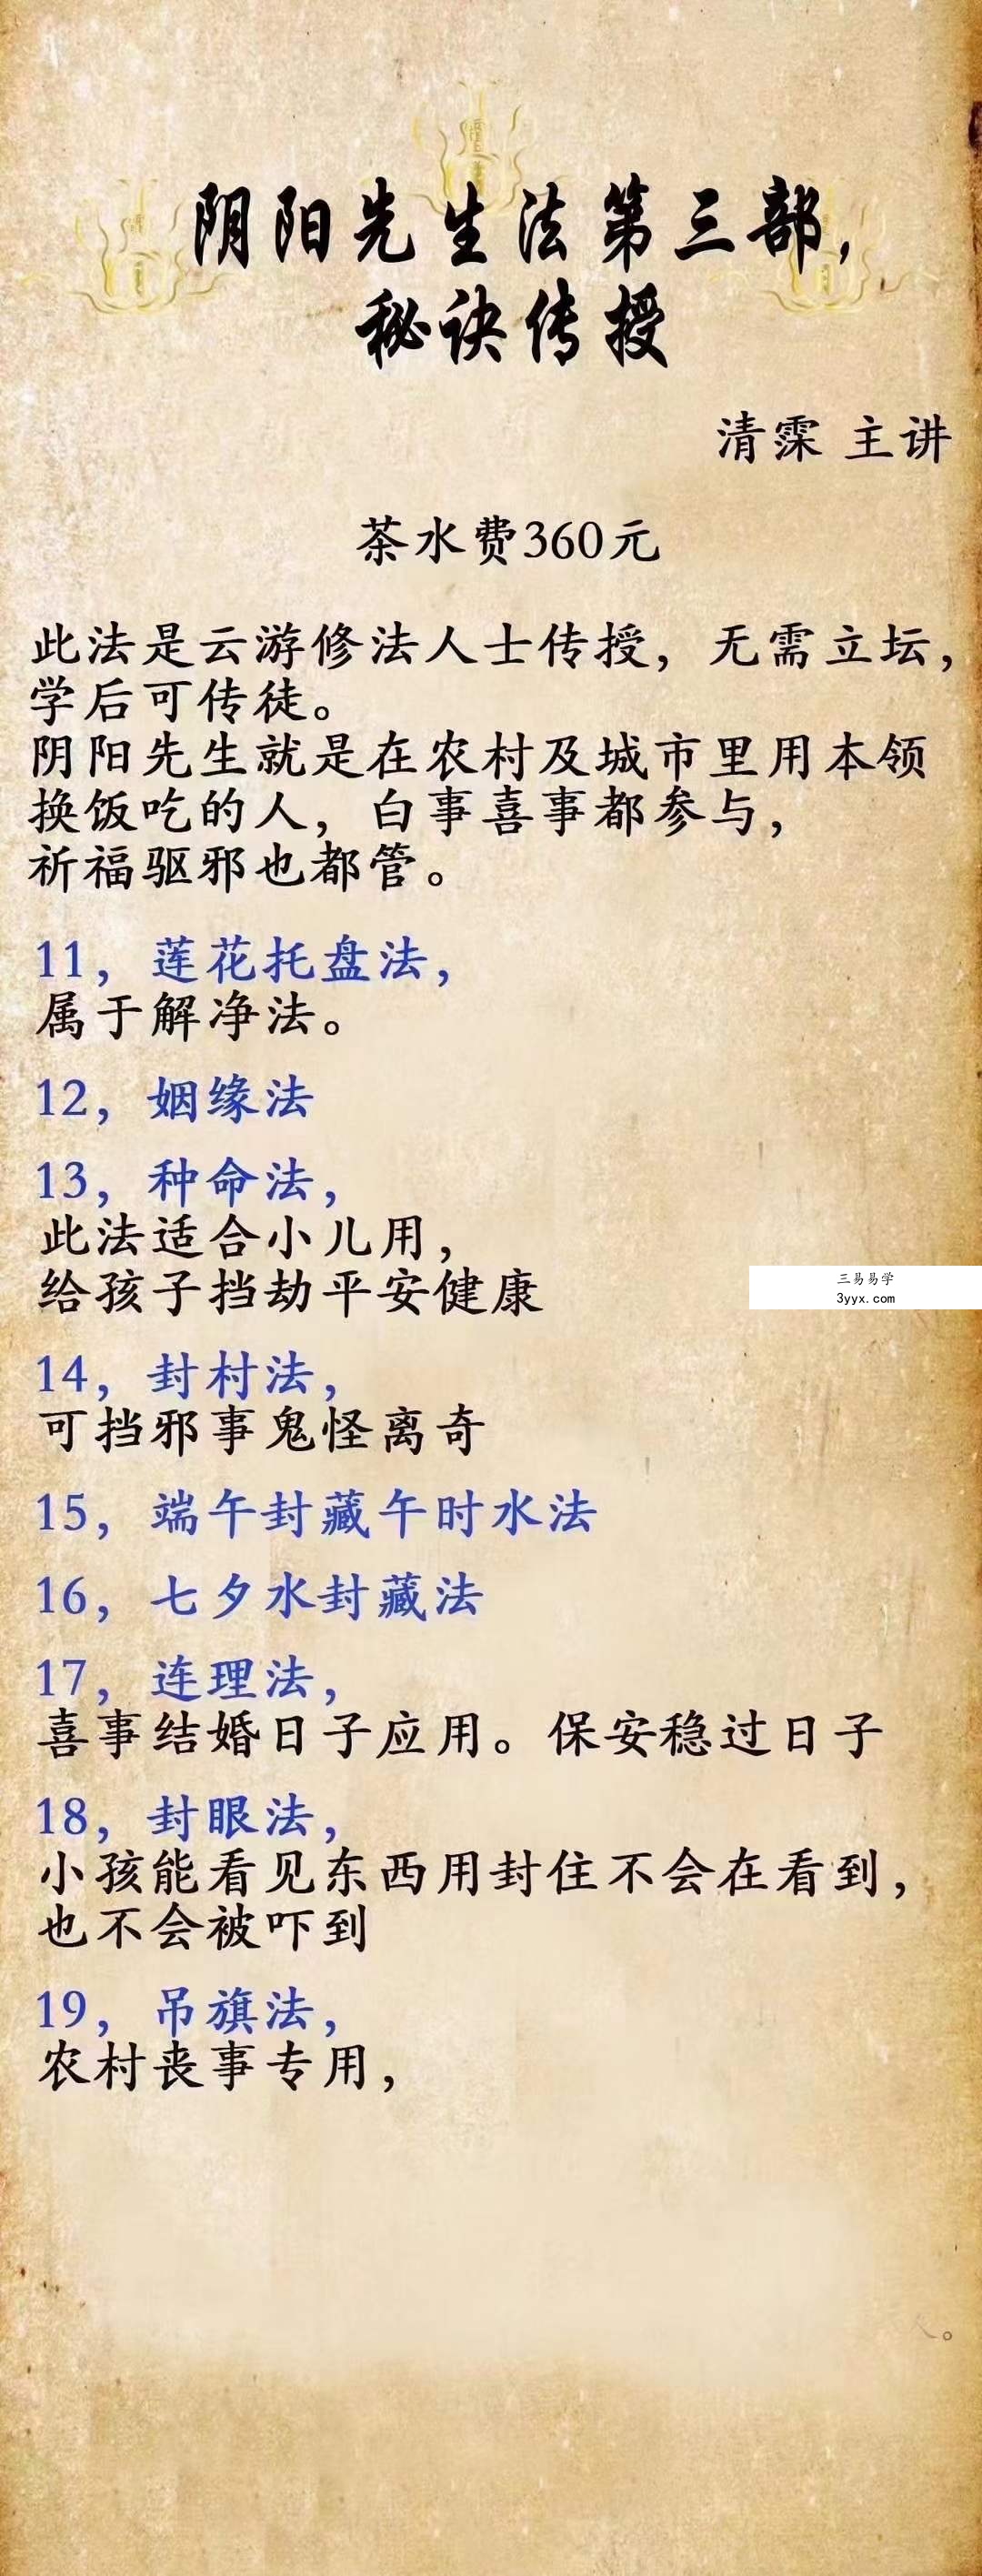 阴阳先生法第三部，
秘诀传授
清霂 主讲
茶水费360元
此法是云游修法人士传授，无需立坛，
学后可传徒。
阴阳先生就是在农村及城市里用本领
换饭吃的人，白事喜事都参与，
祈福驱邪也都管。
11，莲花托盘法，
属于解净法。
12，姻缘法
13，种命法，
此法适合小儿用，
给孩子挡劫平安健康
三易易学
3yyx.com
14，封村法，
可挡邪事鬼怪离奇
15，端午封藏午时水法
16，七夕水封藏法
17，连理法，
喜事结婚日子应用。保安稳过日子
18，封眼法，
小孩能看见东西用封住不会在看到，
也不会被吓到
19，吊旗法，
农村丧事专用，